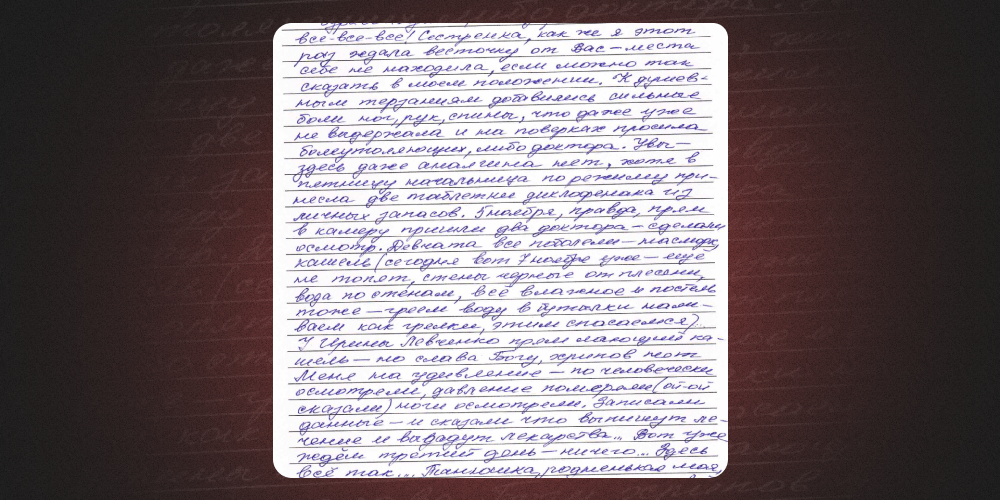 все-все-все! Сестренка, как же я этот
раз ждала весточку от Вас — места
себе не находила, если можно так
сказать в моем положении. К душев-
ным терзаниям добавились сильные
боли ног, рук, спины, что даже уже
не выдержала и на поверках просила
болеутоляющих, либо доктора. Увы —
здесь даже анальгина нет, хотя в
пятницу начальница по режиму при-
несла две таблетки диклофенака из
личных запасов. 5 ноября, правда, прям
в камеру пришли два доктора — сделали
осмотр. Девчата все поболели — насморк,
кашель (сегодня вот 7 ноября уже — еще
не топят, стены черные от плесени,
вода по стенам, всё влажное и постель
тоже — греем воду в бутылки нали-
ваем как грелки, этим спасаемся)..
У Ирины Левченко прям лающий ка-
шель — но слава Богу, хрипов нет
Меня на удивление — по человечески
осмотрели, давление померяли (ой-ой
сказали) ноги осмотрели. Записали
данные — и сказали что выпишут ле-
чение и выдадут лекарства... Вот уже
ждём третий день — ничего... Здесь
всё так... Танюшка, родненькая моя,